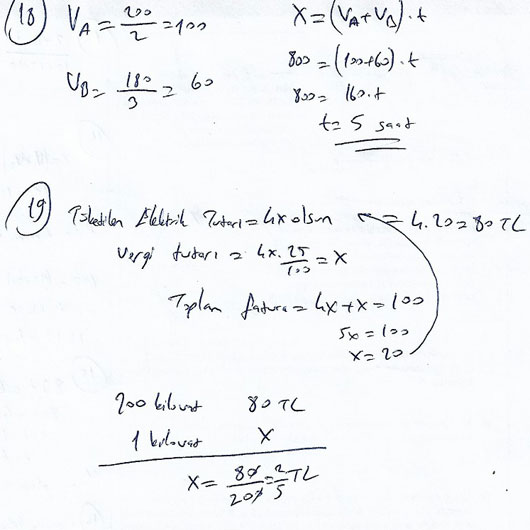 18) V_A = 200/2 = 100
X = (V_A + V_B) . t
V_B = 180/3 = 60
800 = (100+60) . t
800 = 160 . t
t = 5 saat
19) Elektrik Tutarı = 4x olsun = 4.20 = 80 TL
Vergi tutarı = 4x . 25/100 = x
Toplam fatura = 4x + x = 100
5x = 100
x = 20
200 kilovat 80 TL
1 kilovat X
X = 80/200 = 2/5 TL